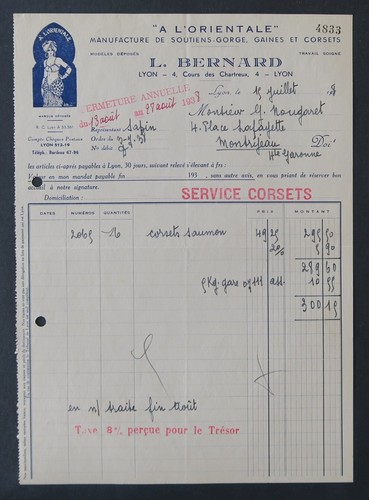 "A L'ORIENTALE"
4833
MANUFACTURE DE SOUTIENS-GORGE, GAINES ET CORSETS
MODÈLES DÉPOSÉS
TRAVAIL SOIGNÉ
L. BERNARD
LYON – 4, Cours des Chartreux, 4 – LYON
A L'ORIENTALE
Lyon, le 15 juillet
FERMETURE ANNUELLE
du 13 août au 29 août 1938
Monsieur G. Nougaret
4. Place Lafayette
Montréjeau
Hte Garonne
Doit
Compte Chèques Postaux
LYON 512-19
Représentant Safin
Ordre du
No débit
Téléph. Burdeau 67-86
les articles ci-après payables à Lyon, 30 jours, suivant relevé s'élevant à frs :
Valeur en mon mandat payable fin 193 , sans autre avis, en vous priant de réserver bon
accueil à notre signature.
Domiciliation :
SERVICE CORSETS
DATES NUMÉROS QUANTITÉ PRIX MONTANT
2065 6 corsets saumon 49 25 295 50
2% 5 90
289 60
5 Kg. gare ass. 10 55
300 15
en n/ traite fin Août
Taxe 8% perçue pour le Trésor